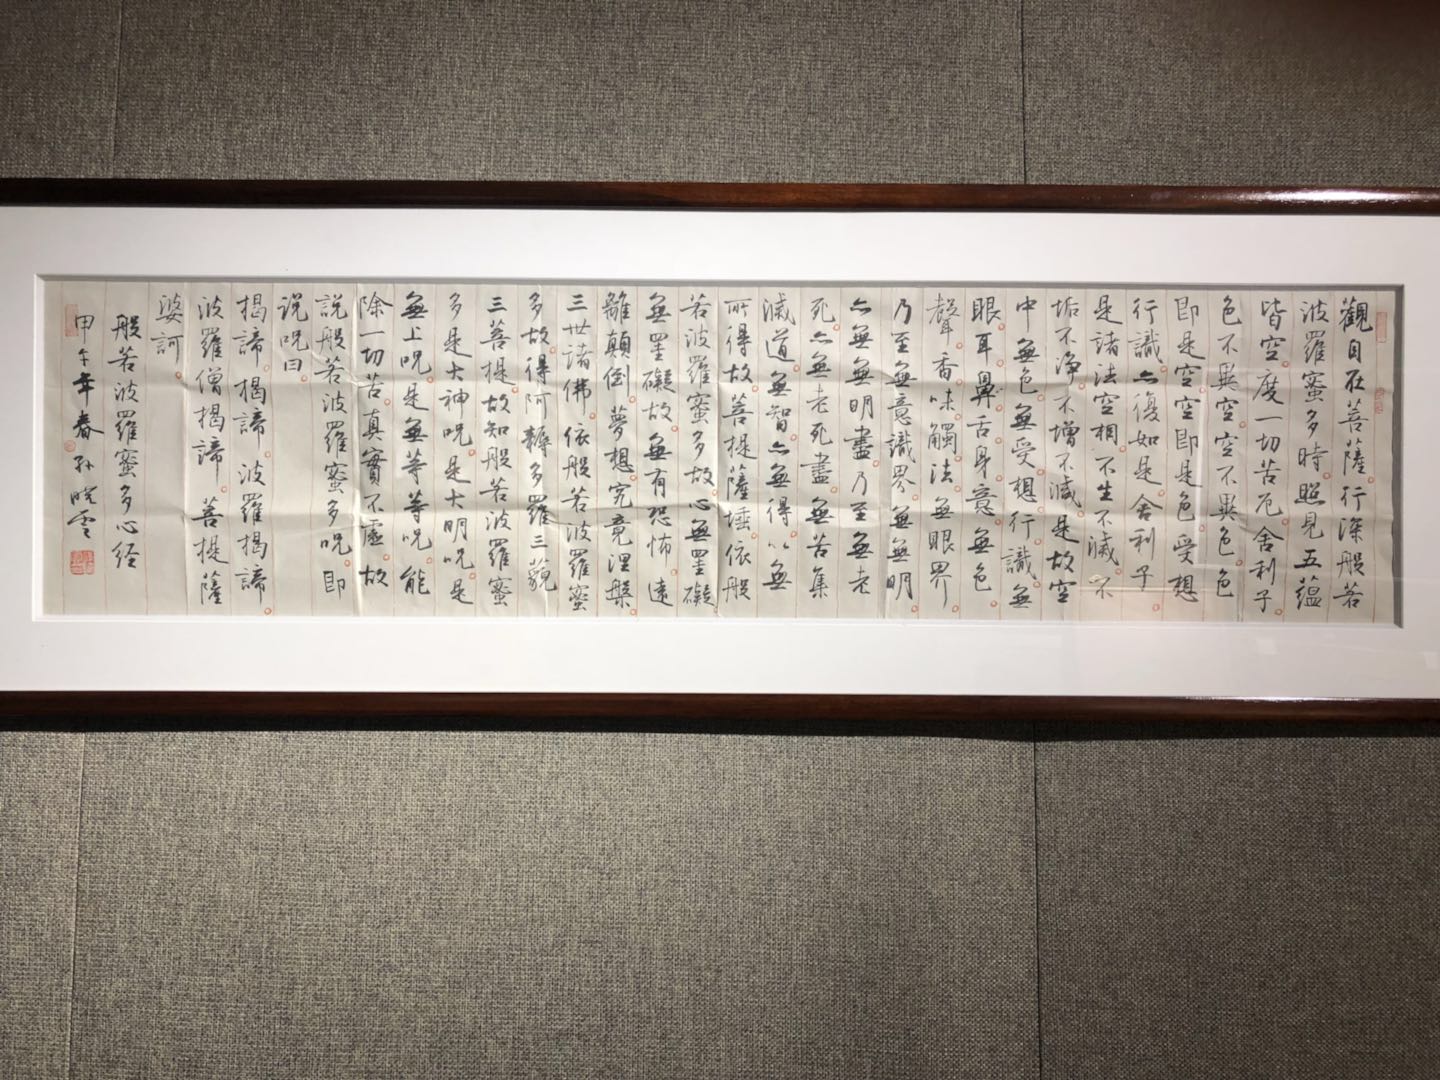 觀自在菩薩行深般若
波羅蜜多時照見五蘊
皆空度一切苦厄舍利子
色不異空空不異色色
即是空空即是色受想
行識亦復如是舍利子
是諸法空相不生不滅不
垢不净不增不減是故空
中無色無受想行識無
眼耳鼻舌身意無色
聲香味觸法無眼界
乃至無意識界無無明
亦無無明盡乃至無老
死亦無老死盡無苦集
滅道無智亦無得以無
所得故菩提薩埵依般
若波羅蜜多故心無罣礙
無罣礙故無有恐怖遠
離顛倒夢想究竟涅槃
三世諸佛依般若波羅蜜
多故得阿耨多羅三藐
三菩提故知般若波羅蜜
多是大神咒是大明咒是
無上咒是無等等咒能
除一切苦真實不虛故
説般若波羅蜜多咒即
説咒曰
揭諦揭諦波羅揭諦
波羅僧揭諦菩提薩
婆訶
般若波羅蜜多心经
甲午年春孙晓雲